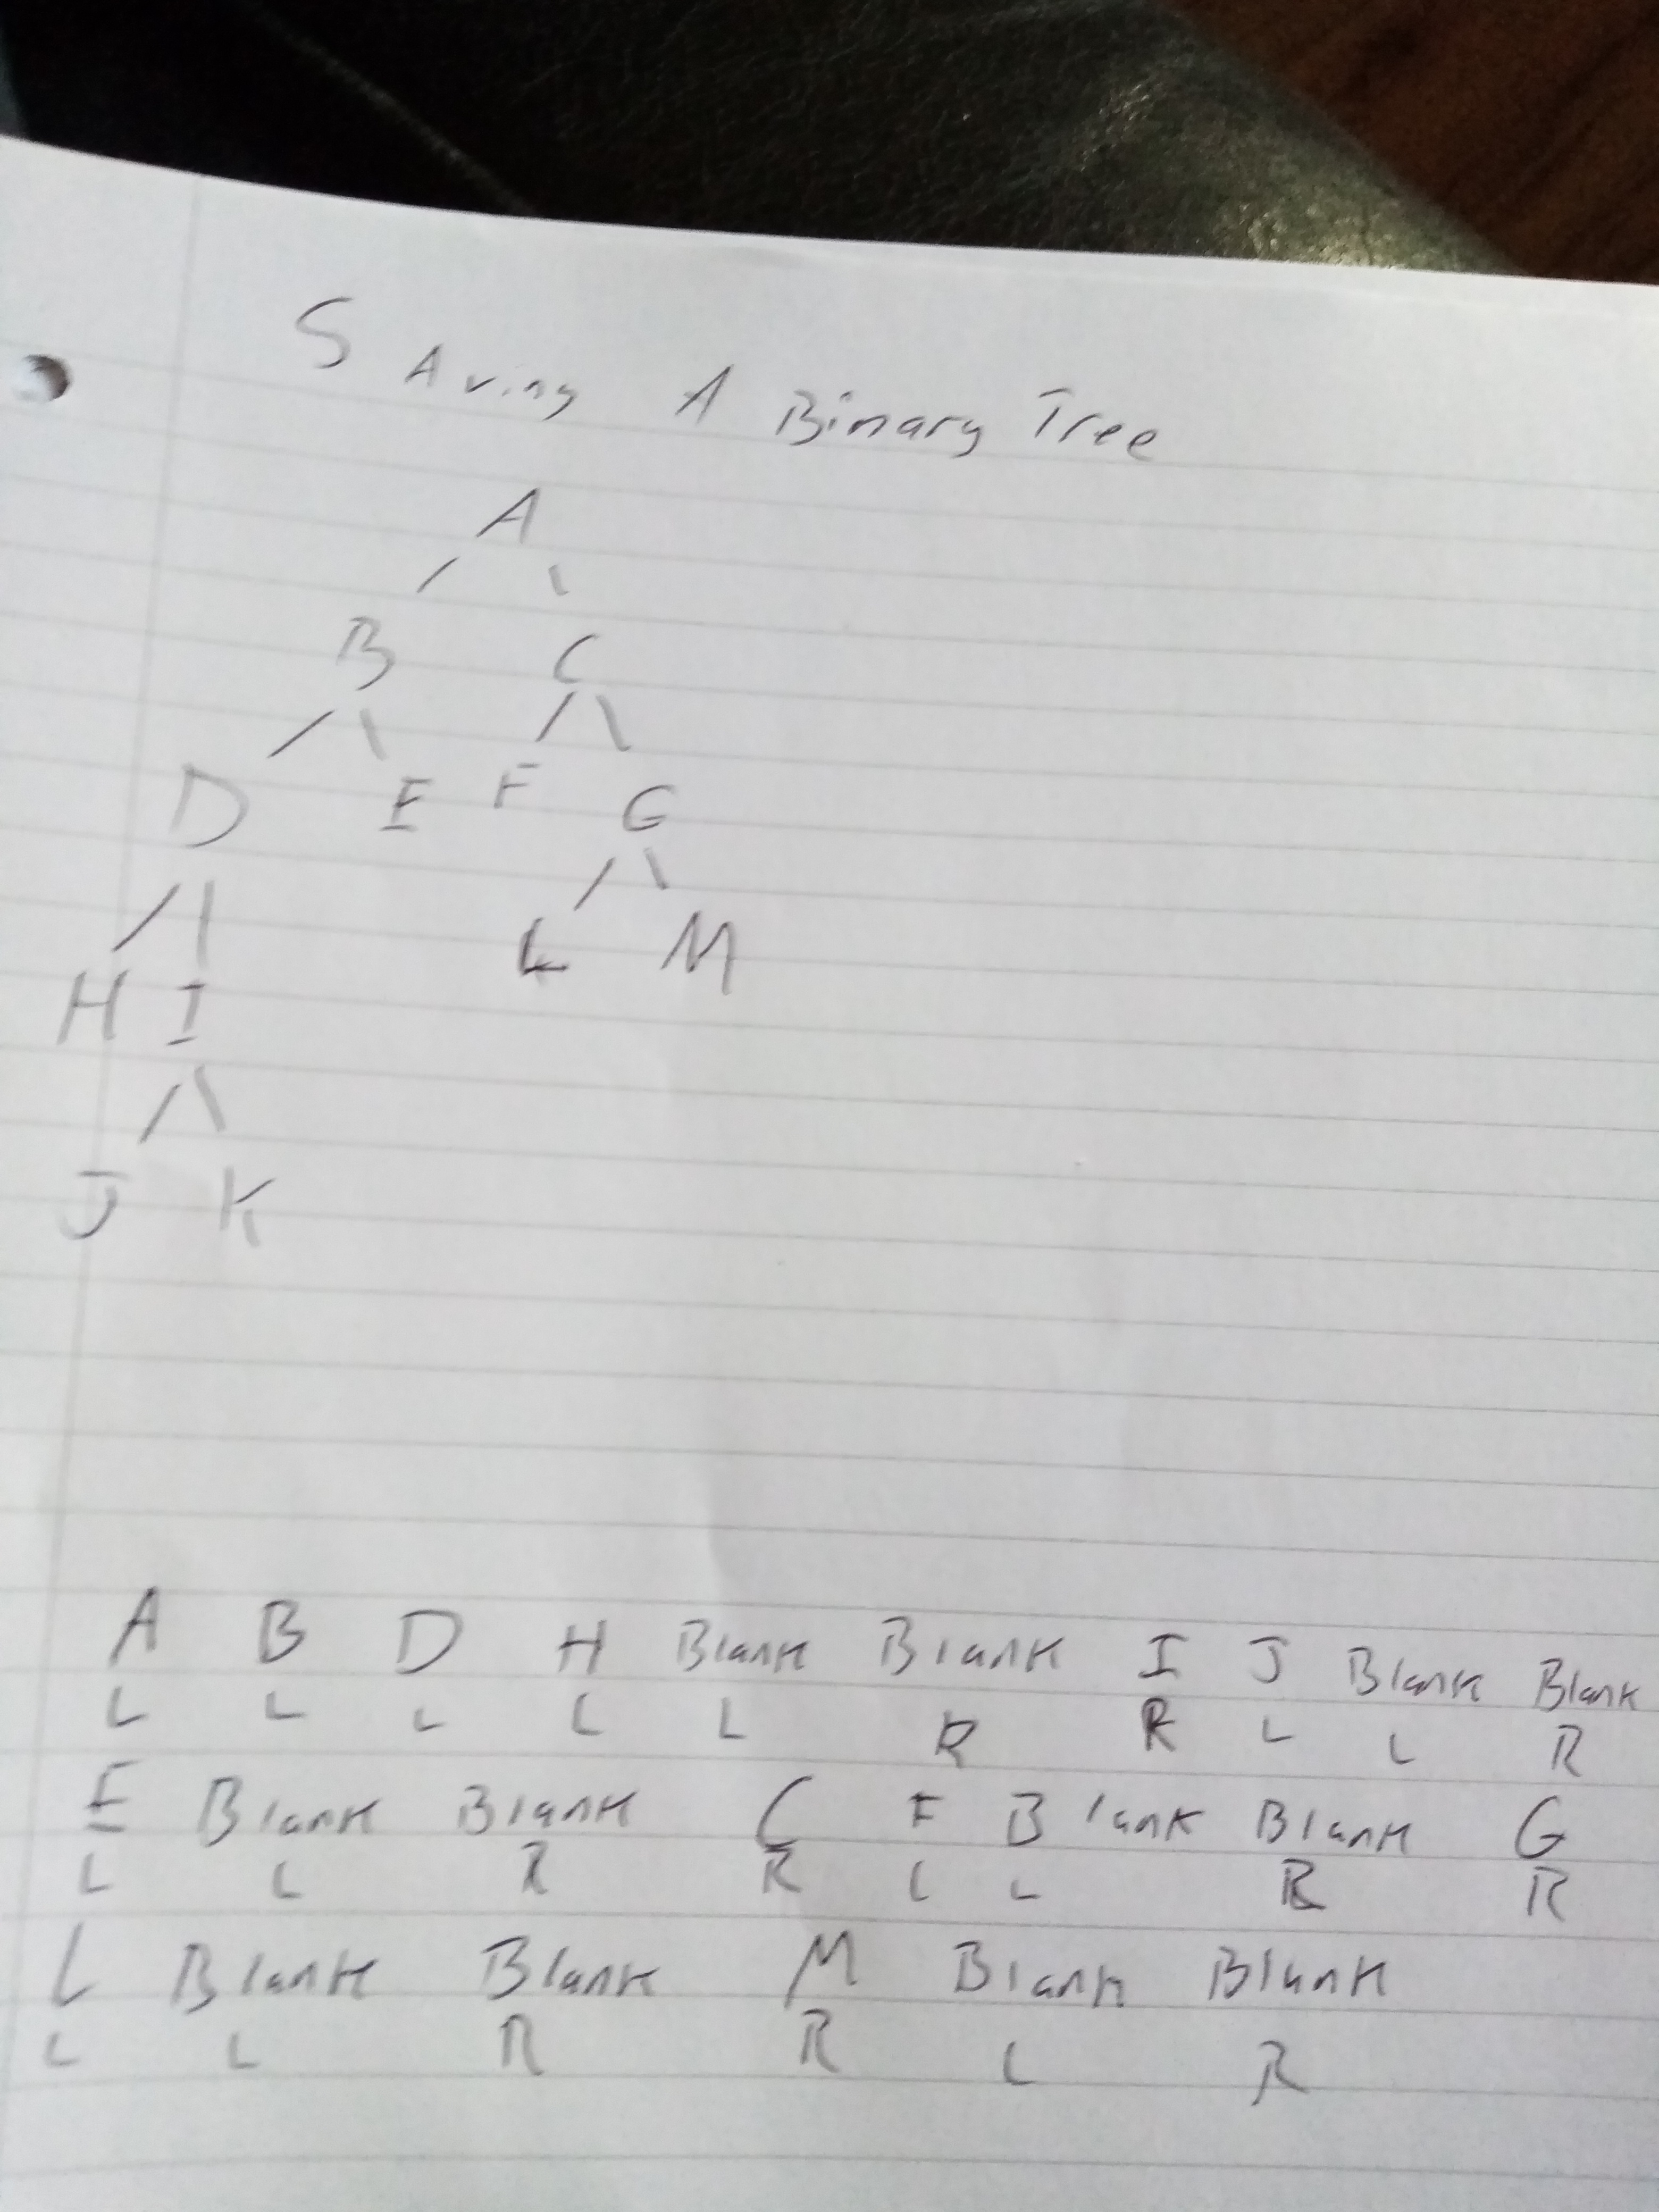 SAving A Binary Tree
A
B C
D E F G
H I L M
J K
A B D H Blank Blank I J Blank Blank
L L L L L R R L L R
E Blank Blank C F Blank Blank G
L L R R L L R R
L Blank Blank M Blank Blank
L L R R L R